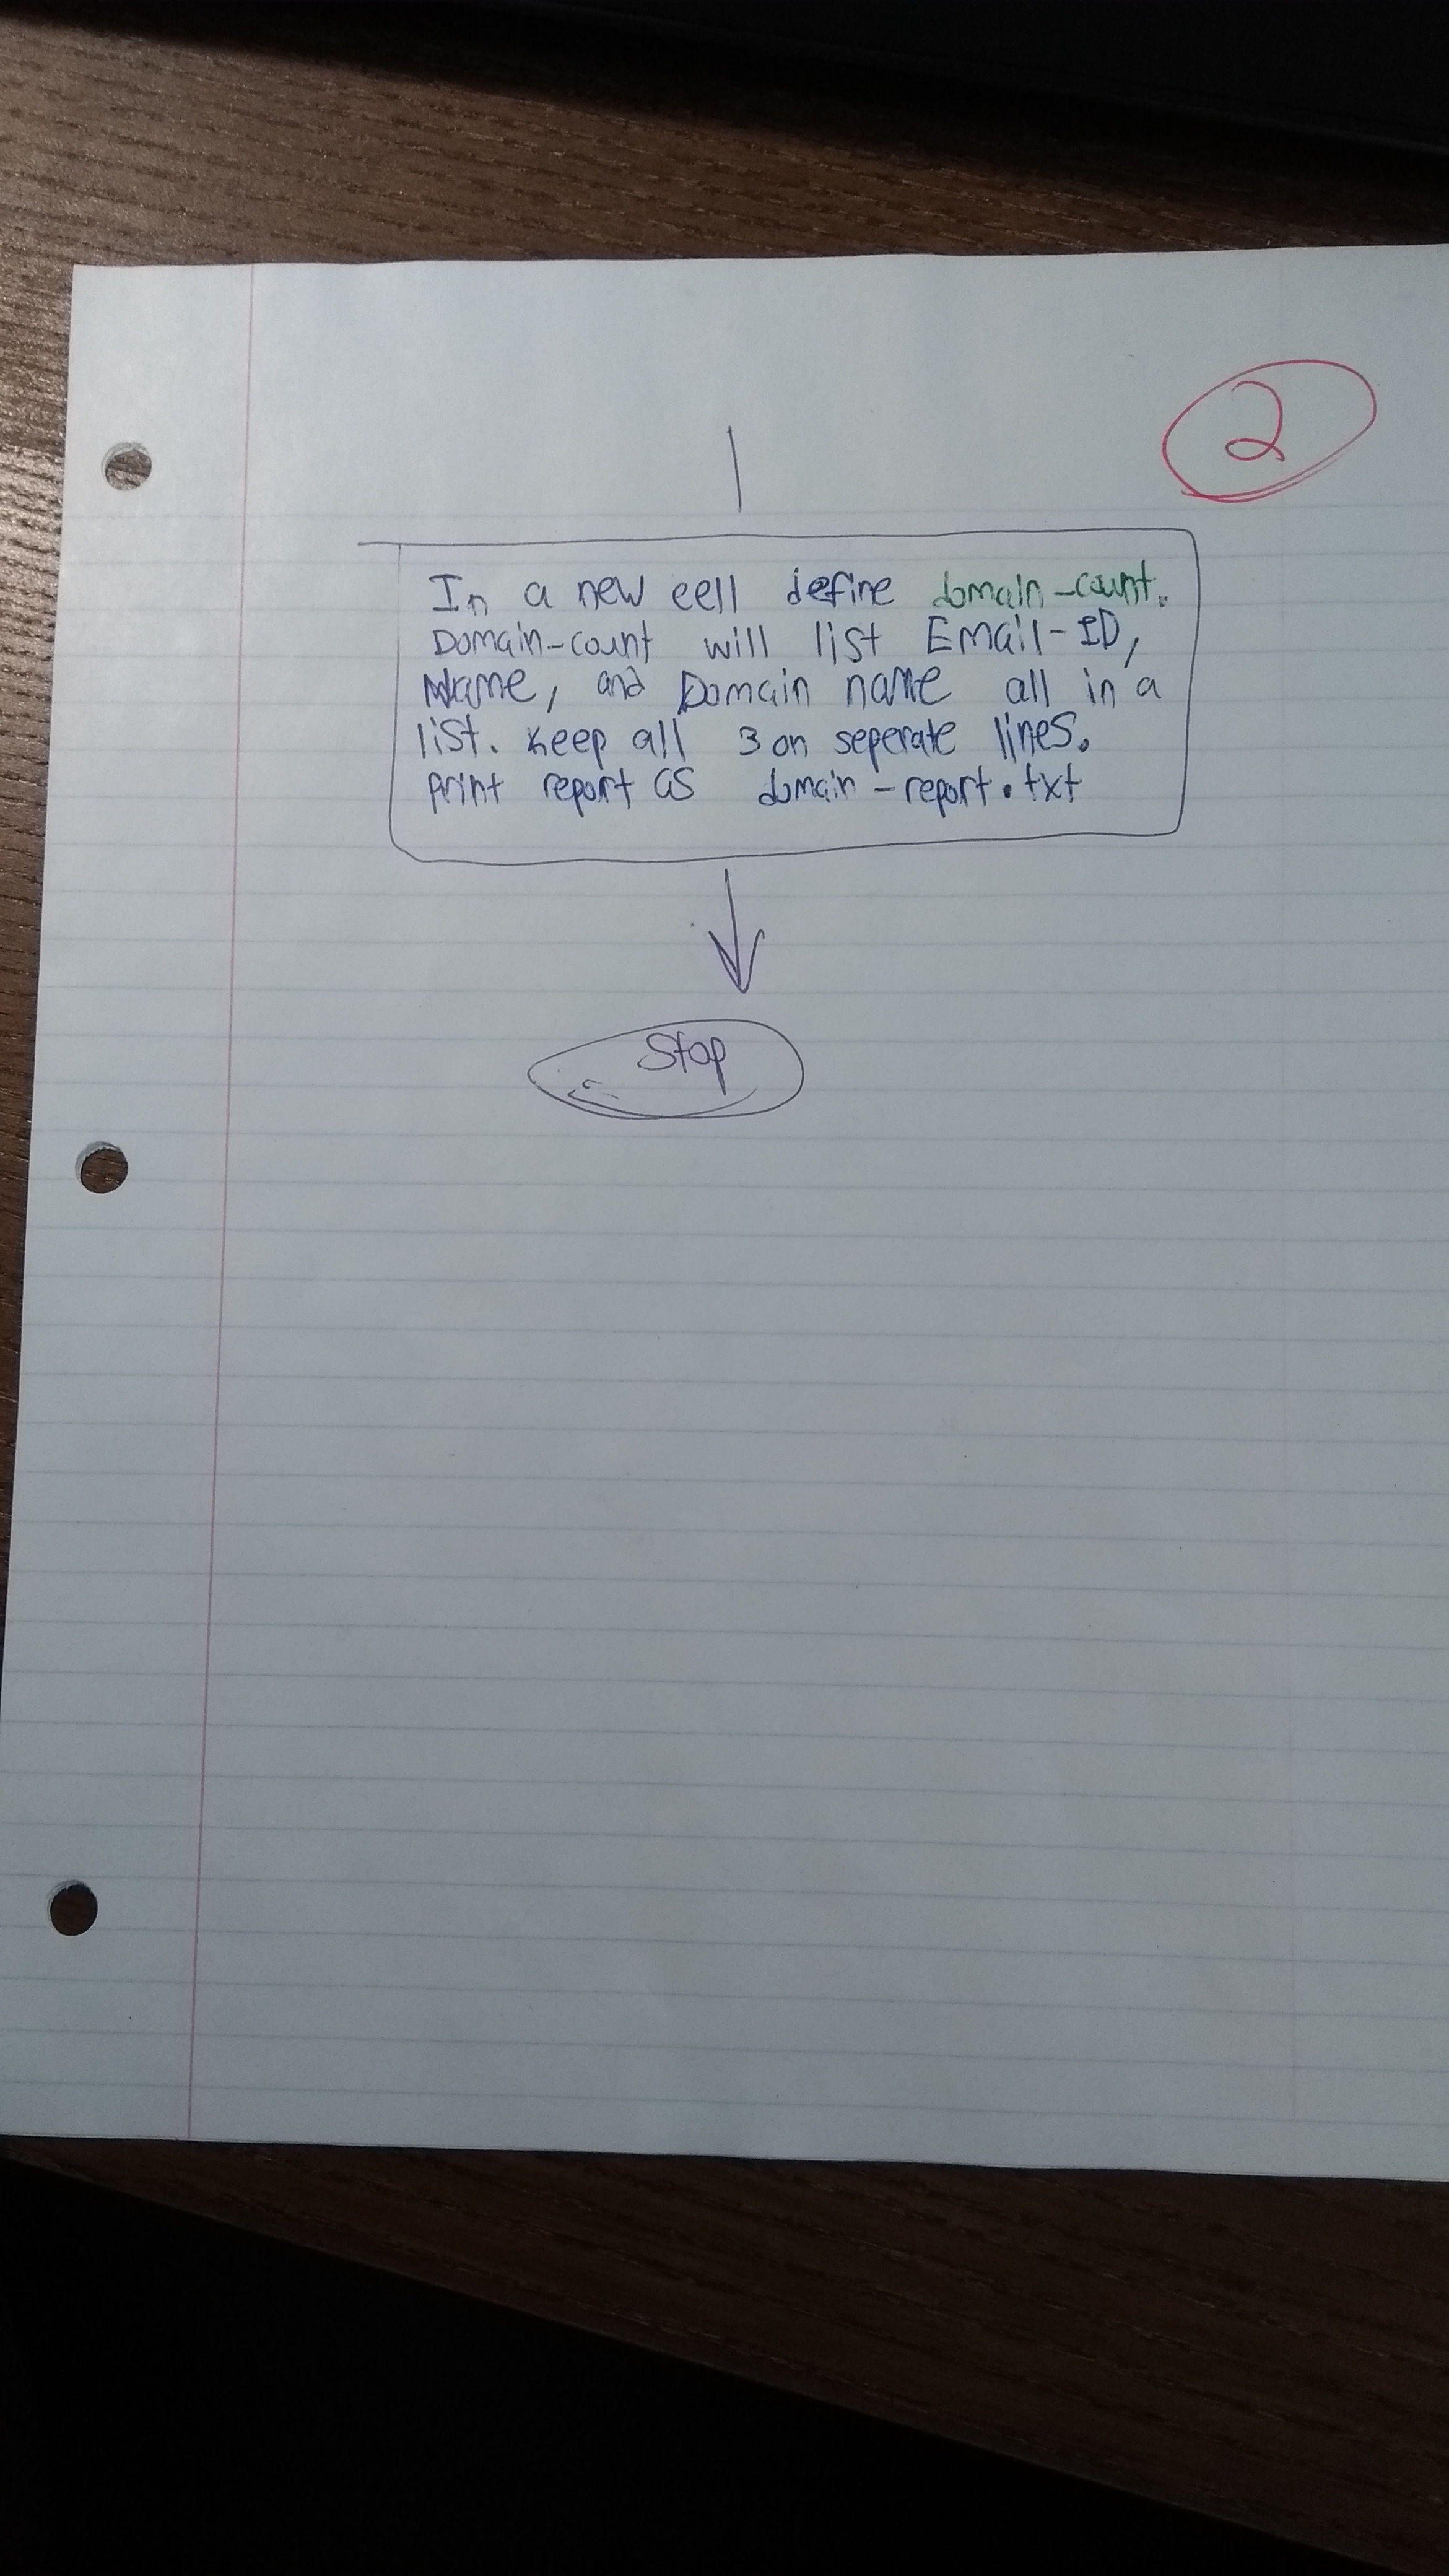 2
In a new cell define domain-count.
Domain-count will list Email-ID,
Name, and Domain name all in a
list. Keep all 3 on seperate lines.
print report as domain-report.txt
Stop